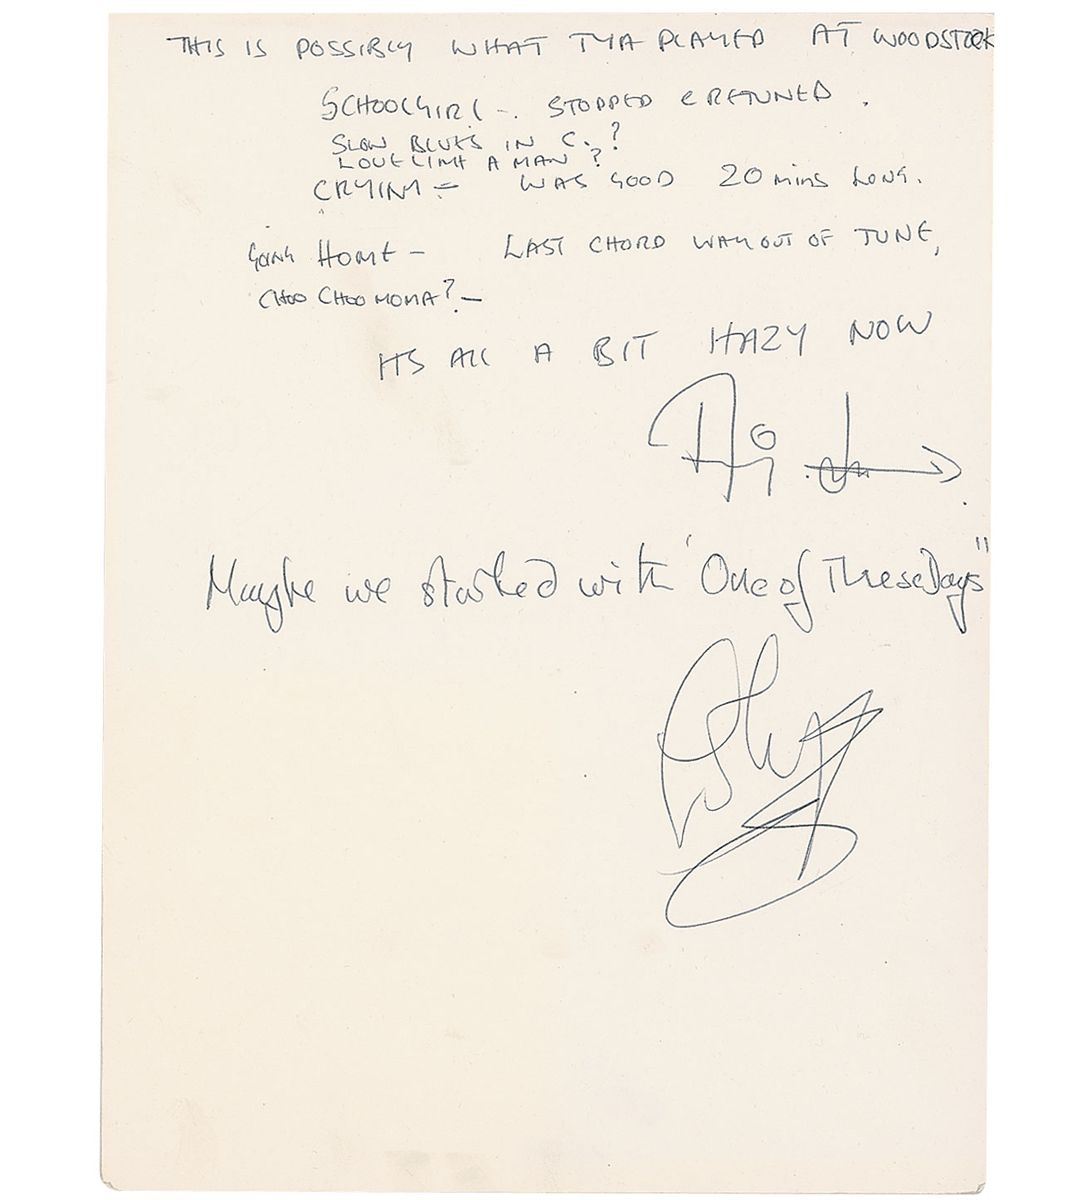 THIS IS POSSIBLY WHAT TYA PLAYED AT WOODSTOCK
SCHOOLGIRL - STOPPED & RETUNED.
SLOW BLUES IN C. ?
LOVE LIKE A MAN ?
CRYIN - WAS GOOD 20 mins LONG.
GOING HOME - LAST CHORD WAY OUT OF TUNE,
CHOO CHOO MOMA? -
ITS ALL A BIT HAZY NOW
Maybe we started with 'One of These Days"